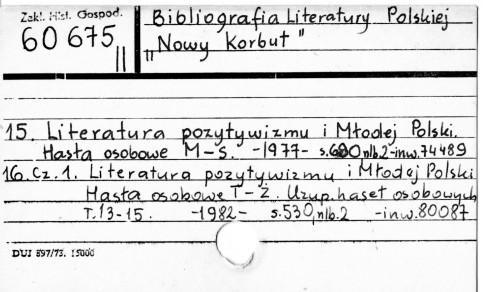 Zakł. Hist. Gospod.
60 675
II
Bibliografia Literatury Polskiej
„Nowy Korbut"
15. Literatura pozytywizmu i Młodej Polski.
Hasła osobowe M-Ś. -1977- s.680,nlb.2-inw.74489
16. Cz.1. Literatura pozytywizmu i Młodej Polski
Hasła osobowe T-Ż. Uzup. haseł osobowych
T.13-15. -1982- s.530,nlb.2 -inw.80087
DUJ 897/75. 15000